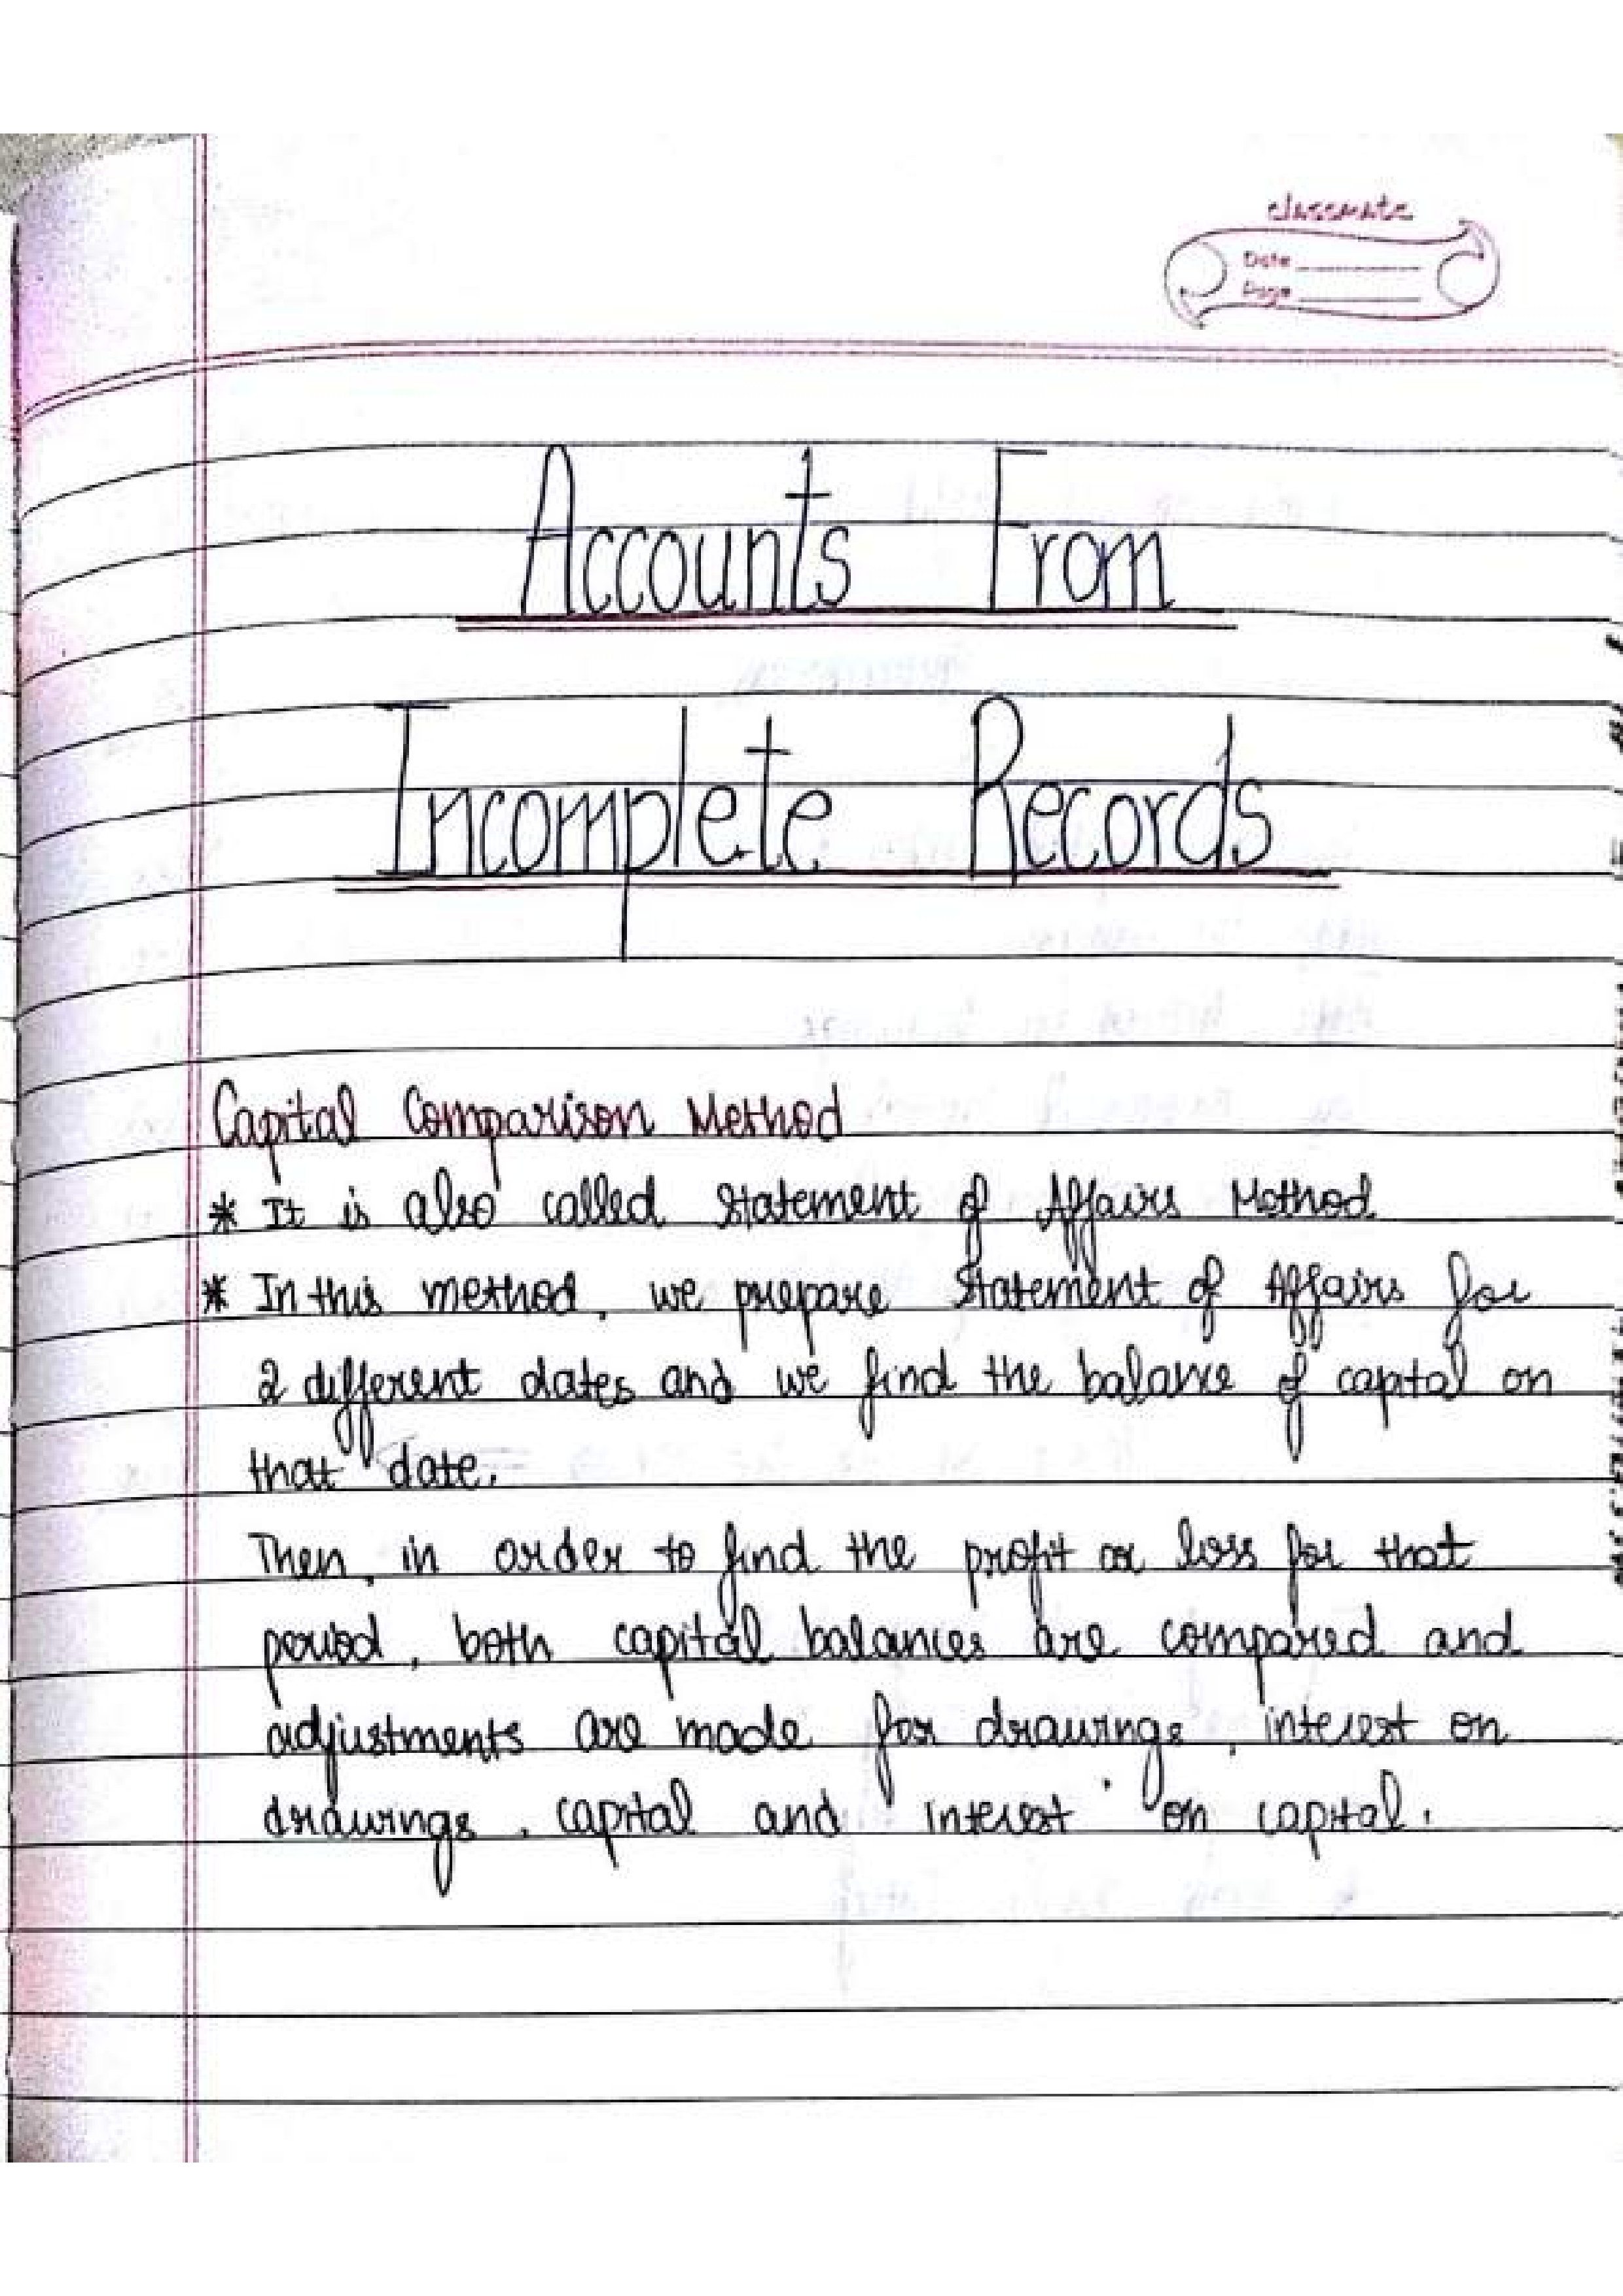 classmate
Date
Page
Accounts From
Incomplete Records
Capital Comparison Method
* It is also called Statement of Affairs Method
* In this method, we prepare Statement of Affairs for
2 different dates and we find the balance of capital on
that date.
Then, in order to find the profit or loss for that
period, both capital balances are compared and
adjustments are made for drawings, interest on
drawings, capital and interest on capital.